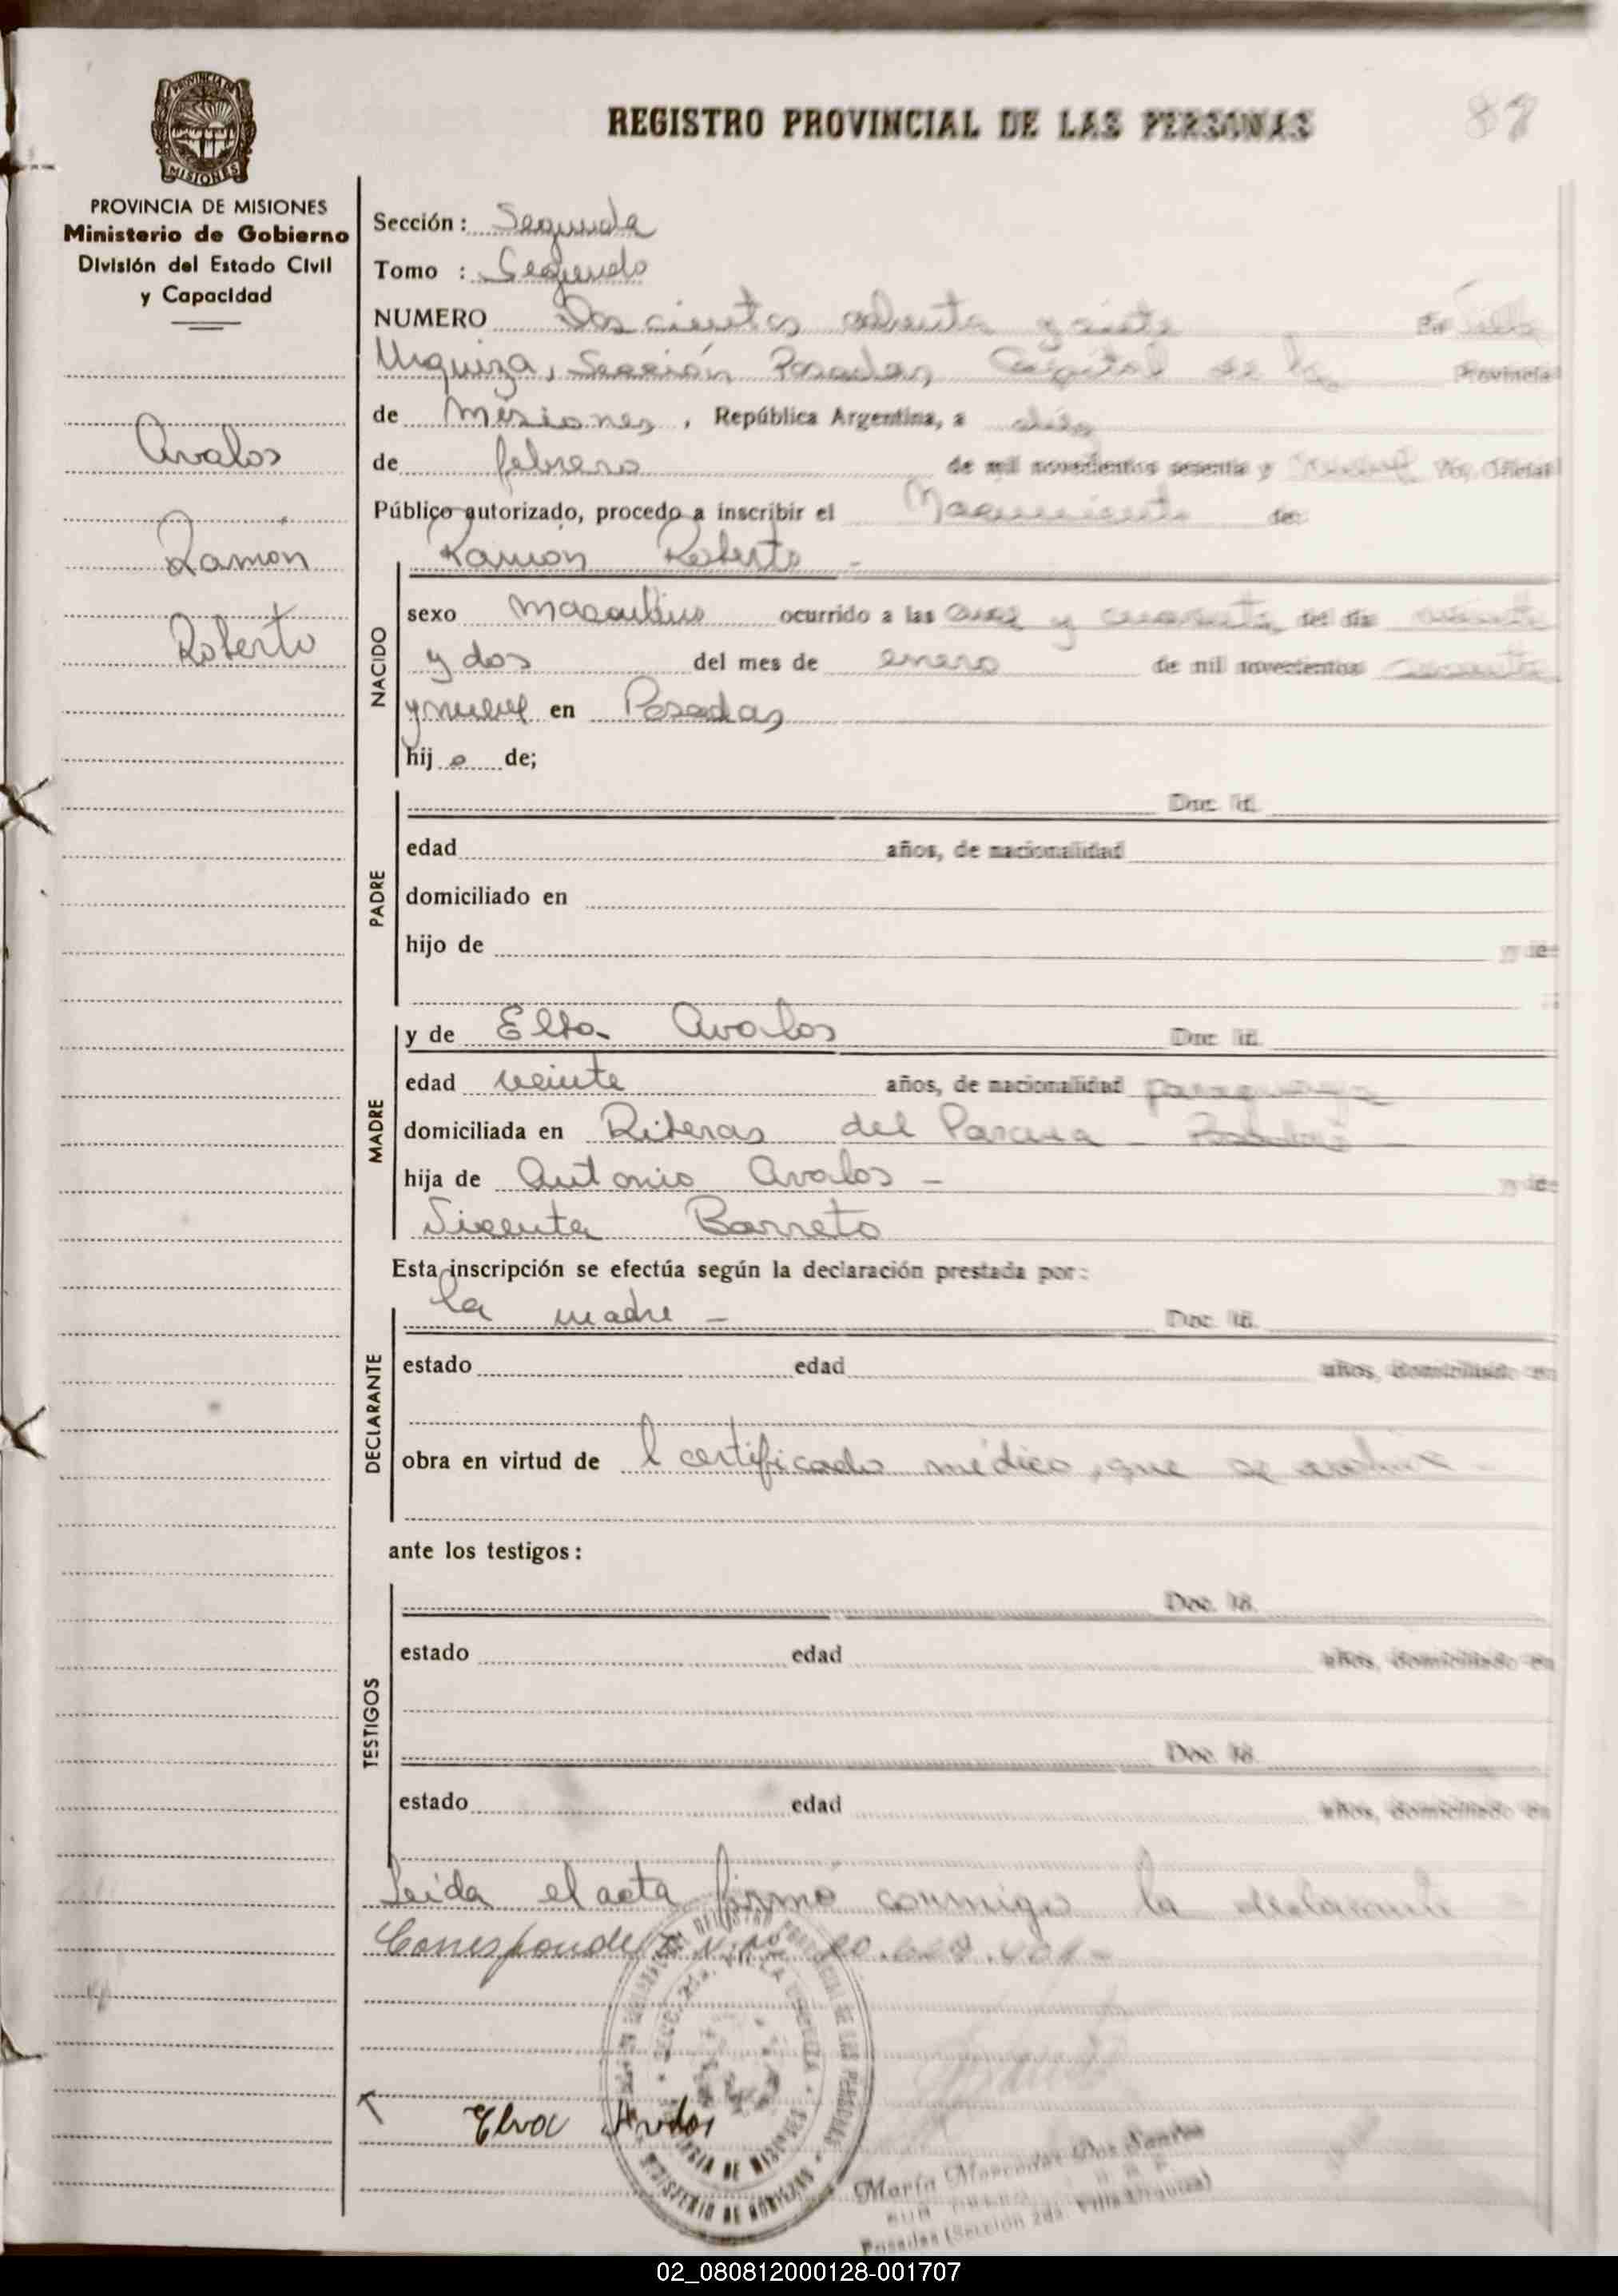 REGISTRO PROVINCIAL DE LAS PERSONAS
PROVINCIA DE MISIONES
Ministerio de Gobierno
División del Estado Civil
y Capacidad
Avalos
Ramon
Roberto
Sección: Segunda
Tomo : Segundo
NUMERO Dos cientos ochenta y siete En Villa
Urquiza, Sección Posadas, Capital de la Provincia
de Misiones, República Argentina, a diez
de febrero de mil novecientos sesenta y nueve Yo, Oficial
Público autorizado, procedo a inscribir el Nacimiento de:
NACIDO
Ramon Roberto -
sexo Masculino ocurrido a las once y cuarenta del día veinte
y dos del mes de enero de mil novecientos sesenta
y nueve en Posadas
hijo de;
PADRE
Doc. Id.
edad años, de nacionalidad
domiciliado en
hijo de y de
MADRE
y de Elba Avalos Doc. Id.
edad veinte años, de nacionalidad paraguaya
domiciliada en Riberas del Parana - Posadas -
hija de Antonio Avalos - y de
Vicenta Barreto
Esta inscripción se efectúa según la declaración prestada por:
DECLARANTE
la madre - Doc. Id.
estado edad años, domiciliado en
obra en virtud de l certificado médico, que se archiva -
ante los testigos:
TESTIGOS
Doc. Id.
estado edad años, domiciliado en
Doc. Id.
estado edad años, domiciliado en
Leida el acta firmó conmigo la declarante -
Corresponde
Elva Avalos
REGISTRO PROVINCIAL DE LAS PERSONAS
VILLA URQUIZA
MINISTERIO DE GOBIERNO
María Mercedes Dos Santos
Posadas (Sección 2da. Villa Urquiza)
02_080812000128-001707